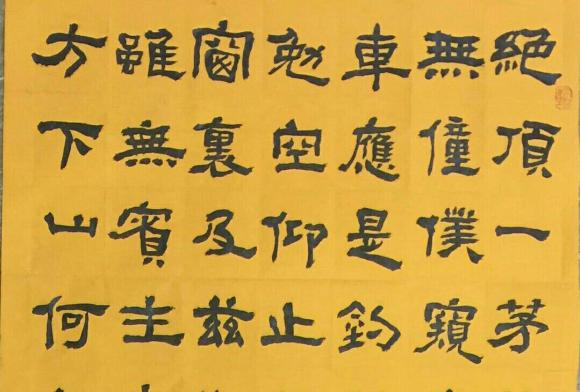 絕頂一茅
無僮僕窺
車應是釣
勉空仰止
窗裏及茲
雖無賓主
方下山何